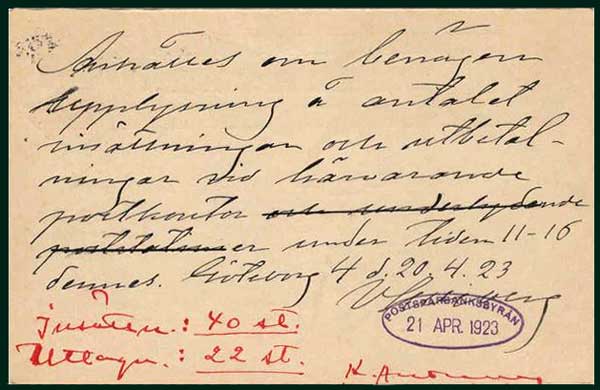 Anhålles om benägen
upplysning å antalet
insättningar och utbetal-
ningar vid härvarande
postkontor och underlydande
er under tiden 11-16
dennes. Göteborg 4 d. 20.4.23
POSTSPARBANKSBYRÅN
21 APR. 1923
Insätn.: 40 st.
Uttagn.: 22 st.
K.